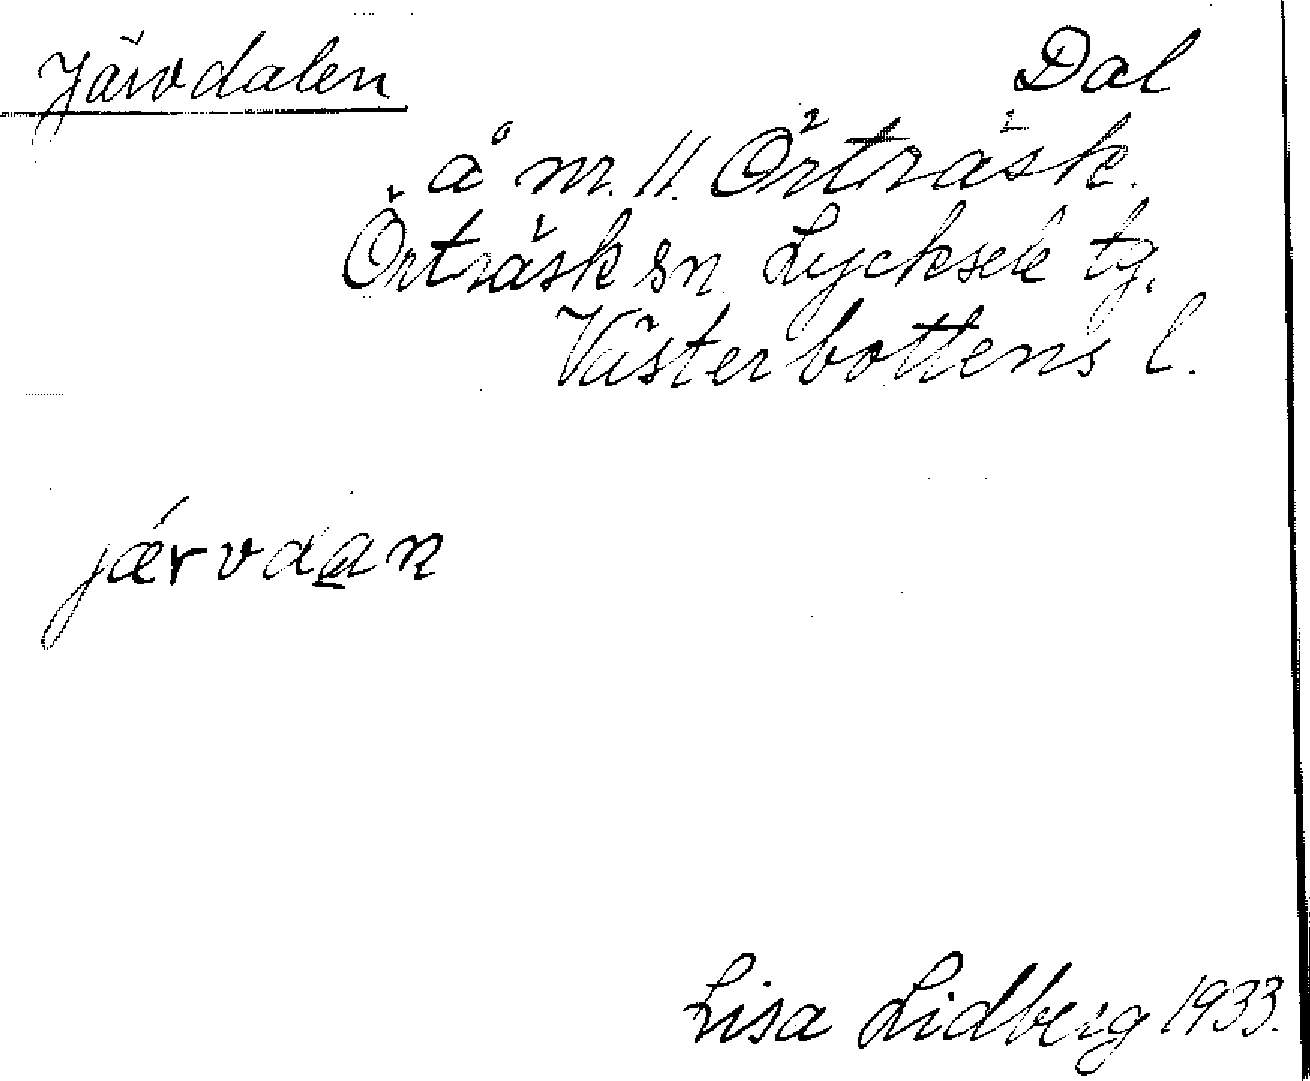 Järvdalen
Dal
å nr. 11. Örträsk.
Örträsk sn Lycksele tg.
Västerbottens l.
jǽrvdan
Lisa Lidberg 1933.